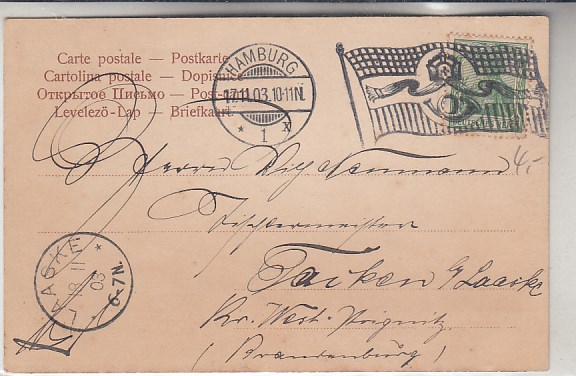 Carte postale — Postkarte
Cartolina postale — Dopisnice
Открытое Письмо — Post-
Levelező-Lap — Briefkaart
HAMBURG
17.11.03.10-11N.
* 1 x
4,-
Herrn Wilh. Neumann
Tischlermeister
Tacken b/ Laaske
Kr. West-Prignitz
(Brandenburg)
LAASKE
18 11
03
6-7N.